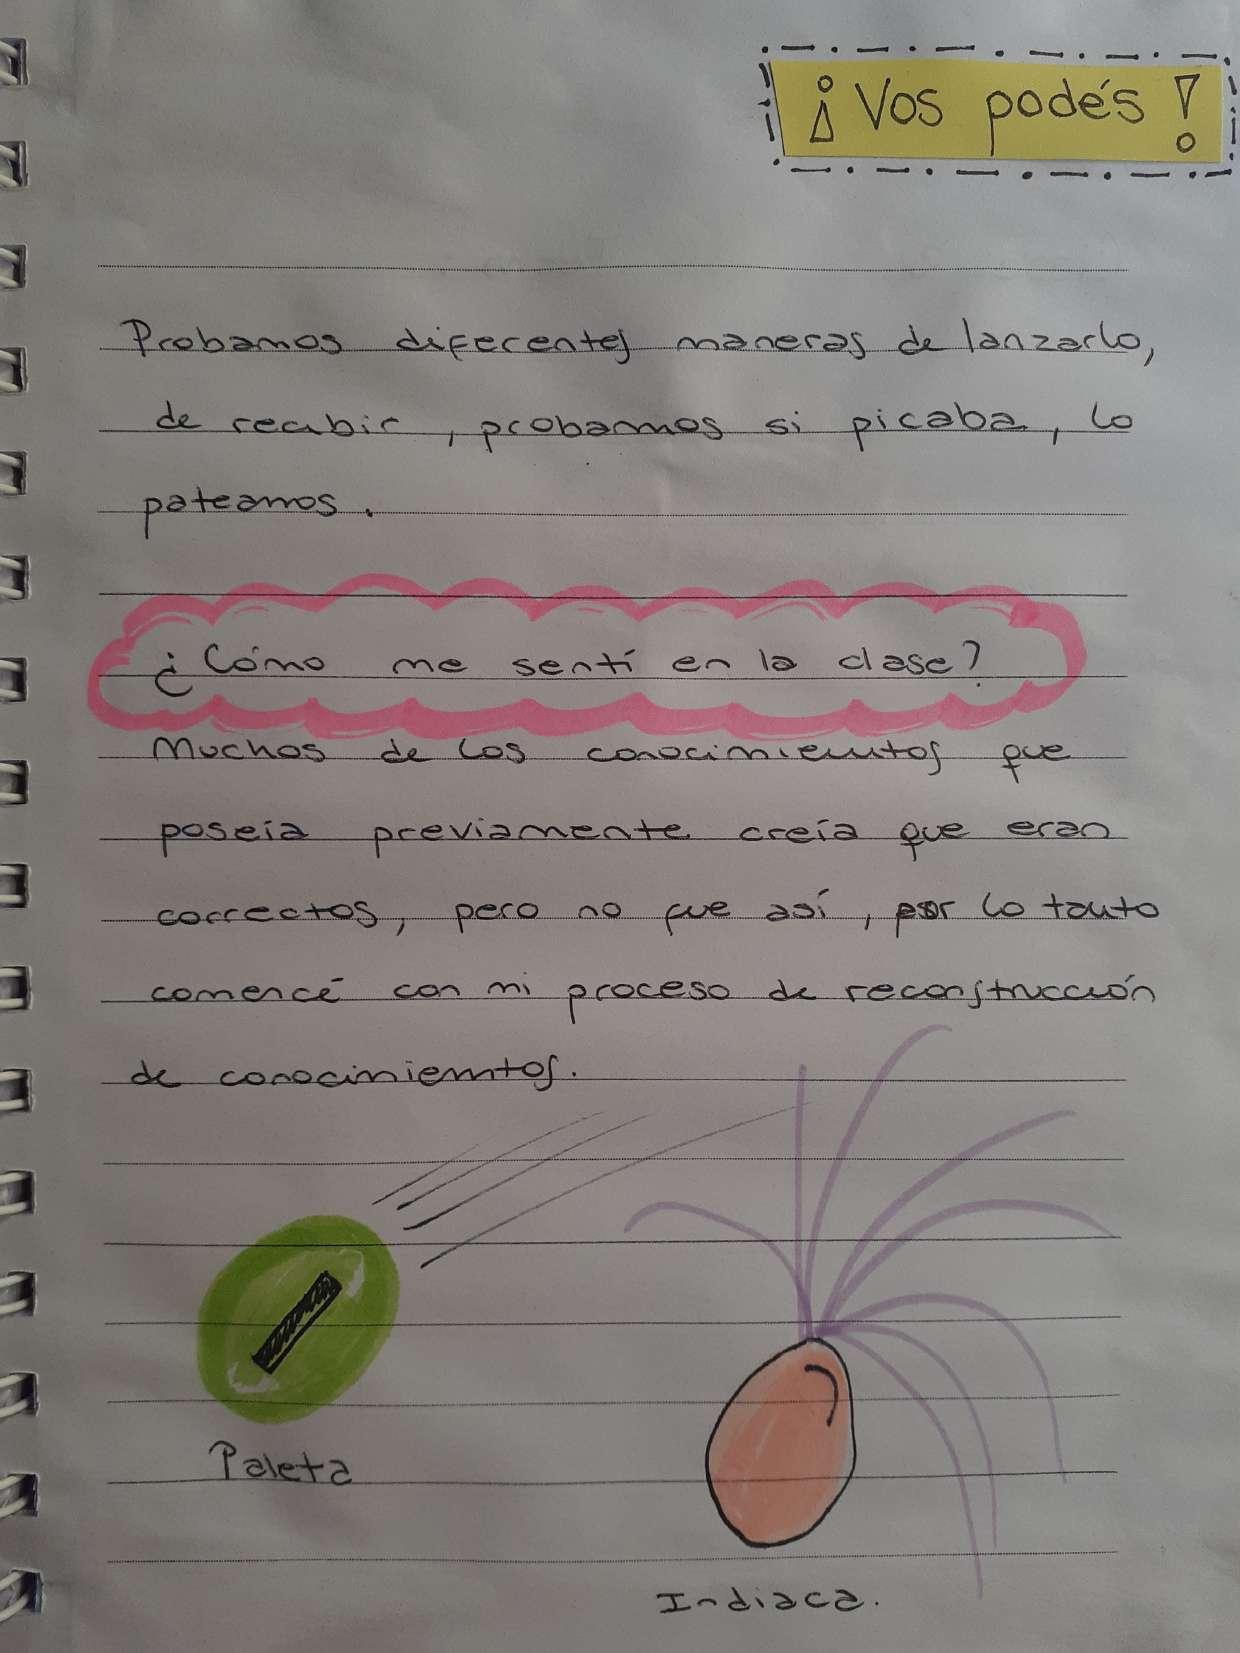 ¡Vos podés!
Probamos diferentes maneras de lanzarlo,
de recibir, probamos si picaba, lo
pateamos.
¿Cómo me sentí en la clase?
Muchos de los conocimientos que
poseía previamente creía que eran
correctos, pero no que así, por lo tanto
comencé con mi proceso de reconstrucción
de conocimientos.
Paleta
Indiaca.